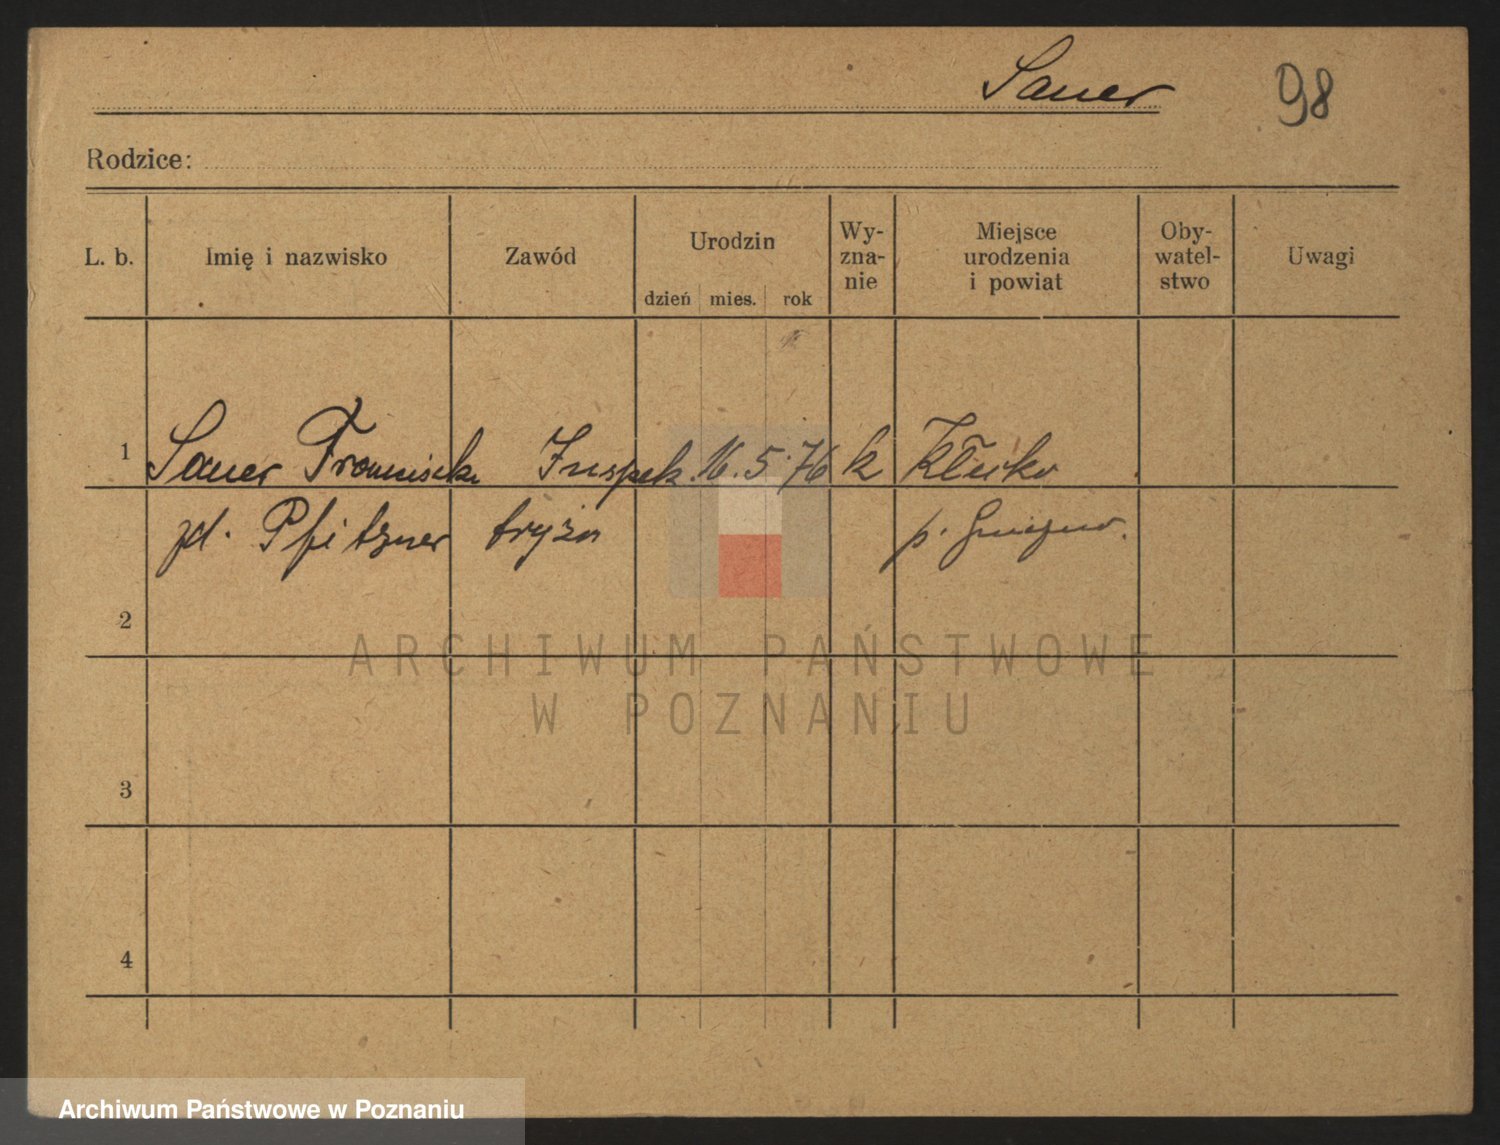 Sauer 98
Rodzice:
L. b. Imię i nazwisko Zawód Urodzin Wy-
zna-
nie Miejsce
urodzenia
i powiat Oby-
watel-
stwo Uwagi
dzień mies. rok
1 Sauer Franciszka Inspek. 16. 5. 76 k Kłecko
zd. Pfitzner tryża p. Gniezno.
2
3
4
ARCHIWUM PAŃSTWOWE
W POZNANIU
Archiwum Państwowe w Poznaniu